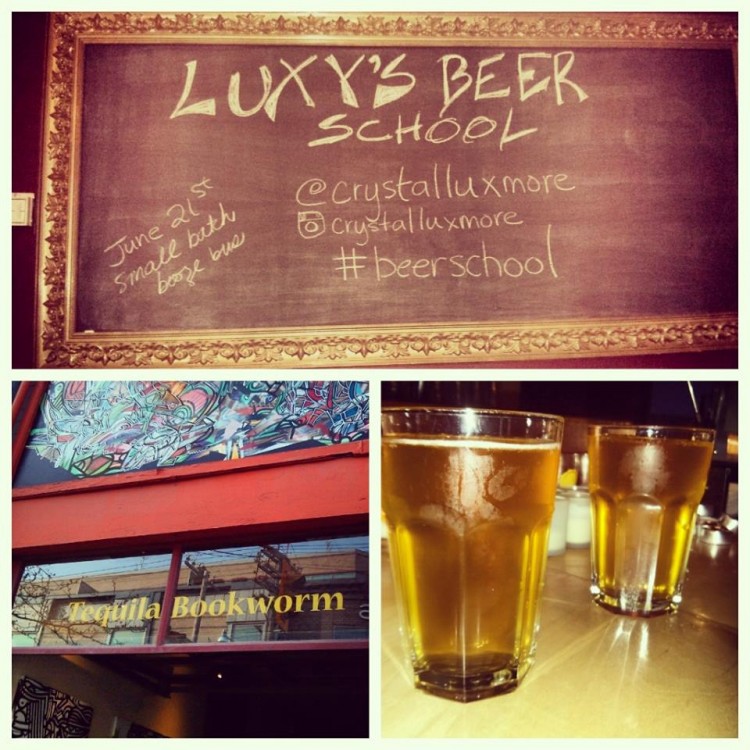 LUXY'S BEER
SCHOOL
@crystalluxmore
crystalluxmore
#beerschool
June 21st
small batch
booze bus
Tequila Bookworm